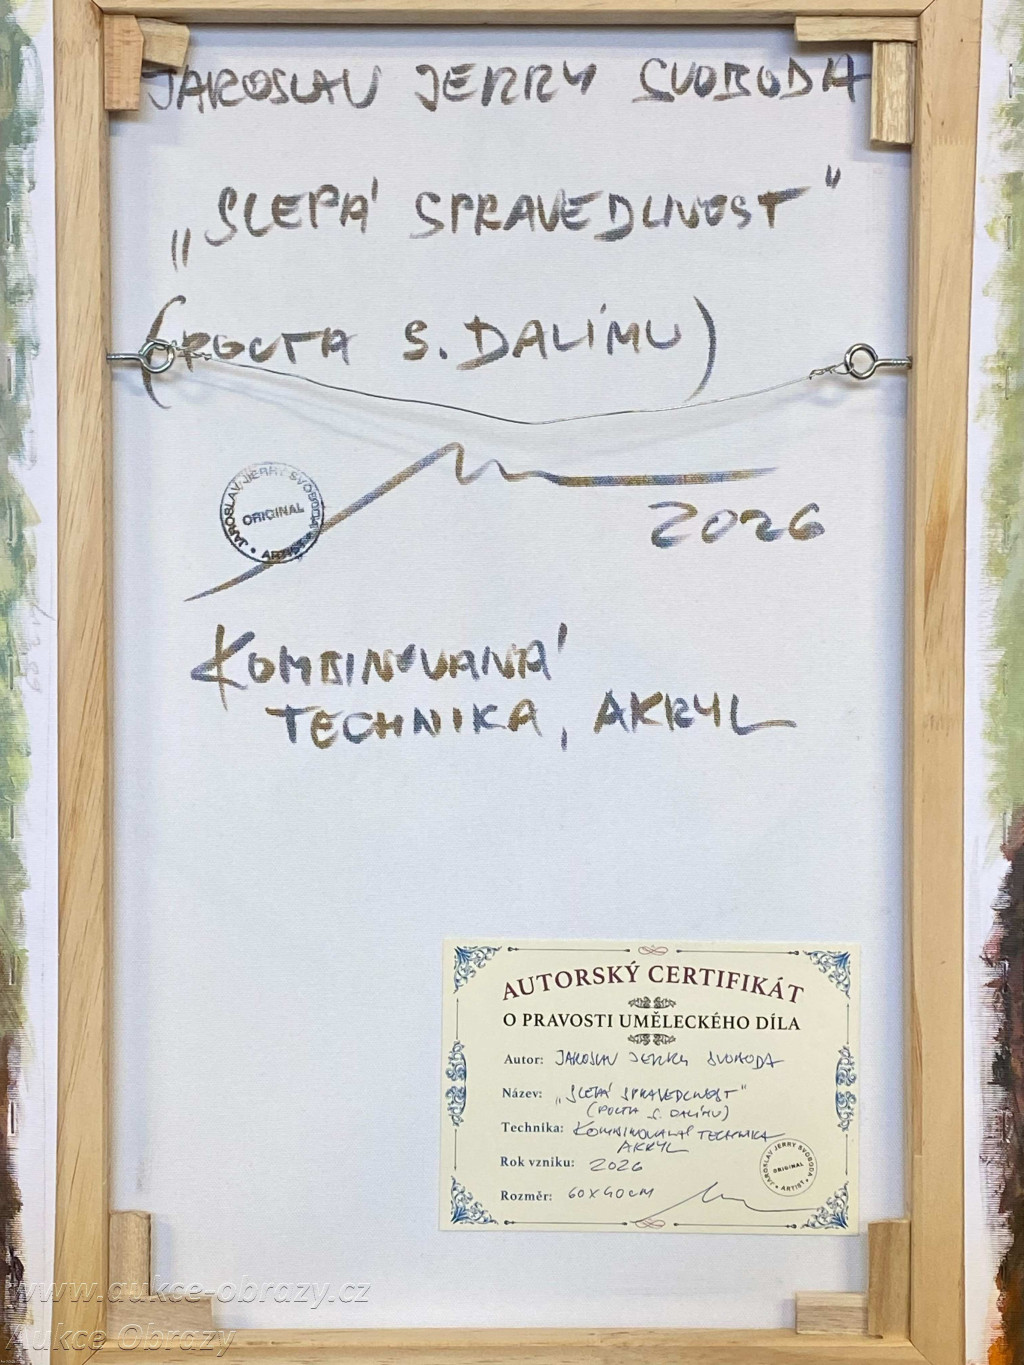 JAROSLAV JERRY SVOBODA
„SLEPÁ SPRAVEDLNOST"
(POCTA S. DALÍMU)
JAROSLAV JERRY SVOBODA
ORIGINAL
• ARTIST •
2026
KOMBINOVANÁ
TECHNIKA, AKRYL
AUTORSKÝ CERTIFIKÁT
O PRAVOSTI UMĚLECKÉHO DÍLA
Autor: JAROSLAV JERRY SVOBODA
Název: „SLEPÁ SPRAVEDLNOST"
(POCTA S. DALÍMU)
Technika: KOMBINOVANÁ TECHNIKA
AKRYL
Rok vzniku: 2026
Rozměr: 60X40CM
JAROSLAV JERRY SVOBODA
ORIGINAL
• ARTIST •
www.aukce-obrazy.cz
Aukce Obrazy